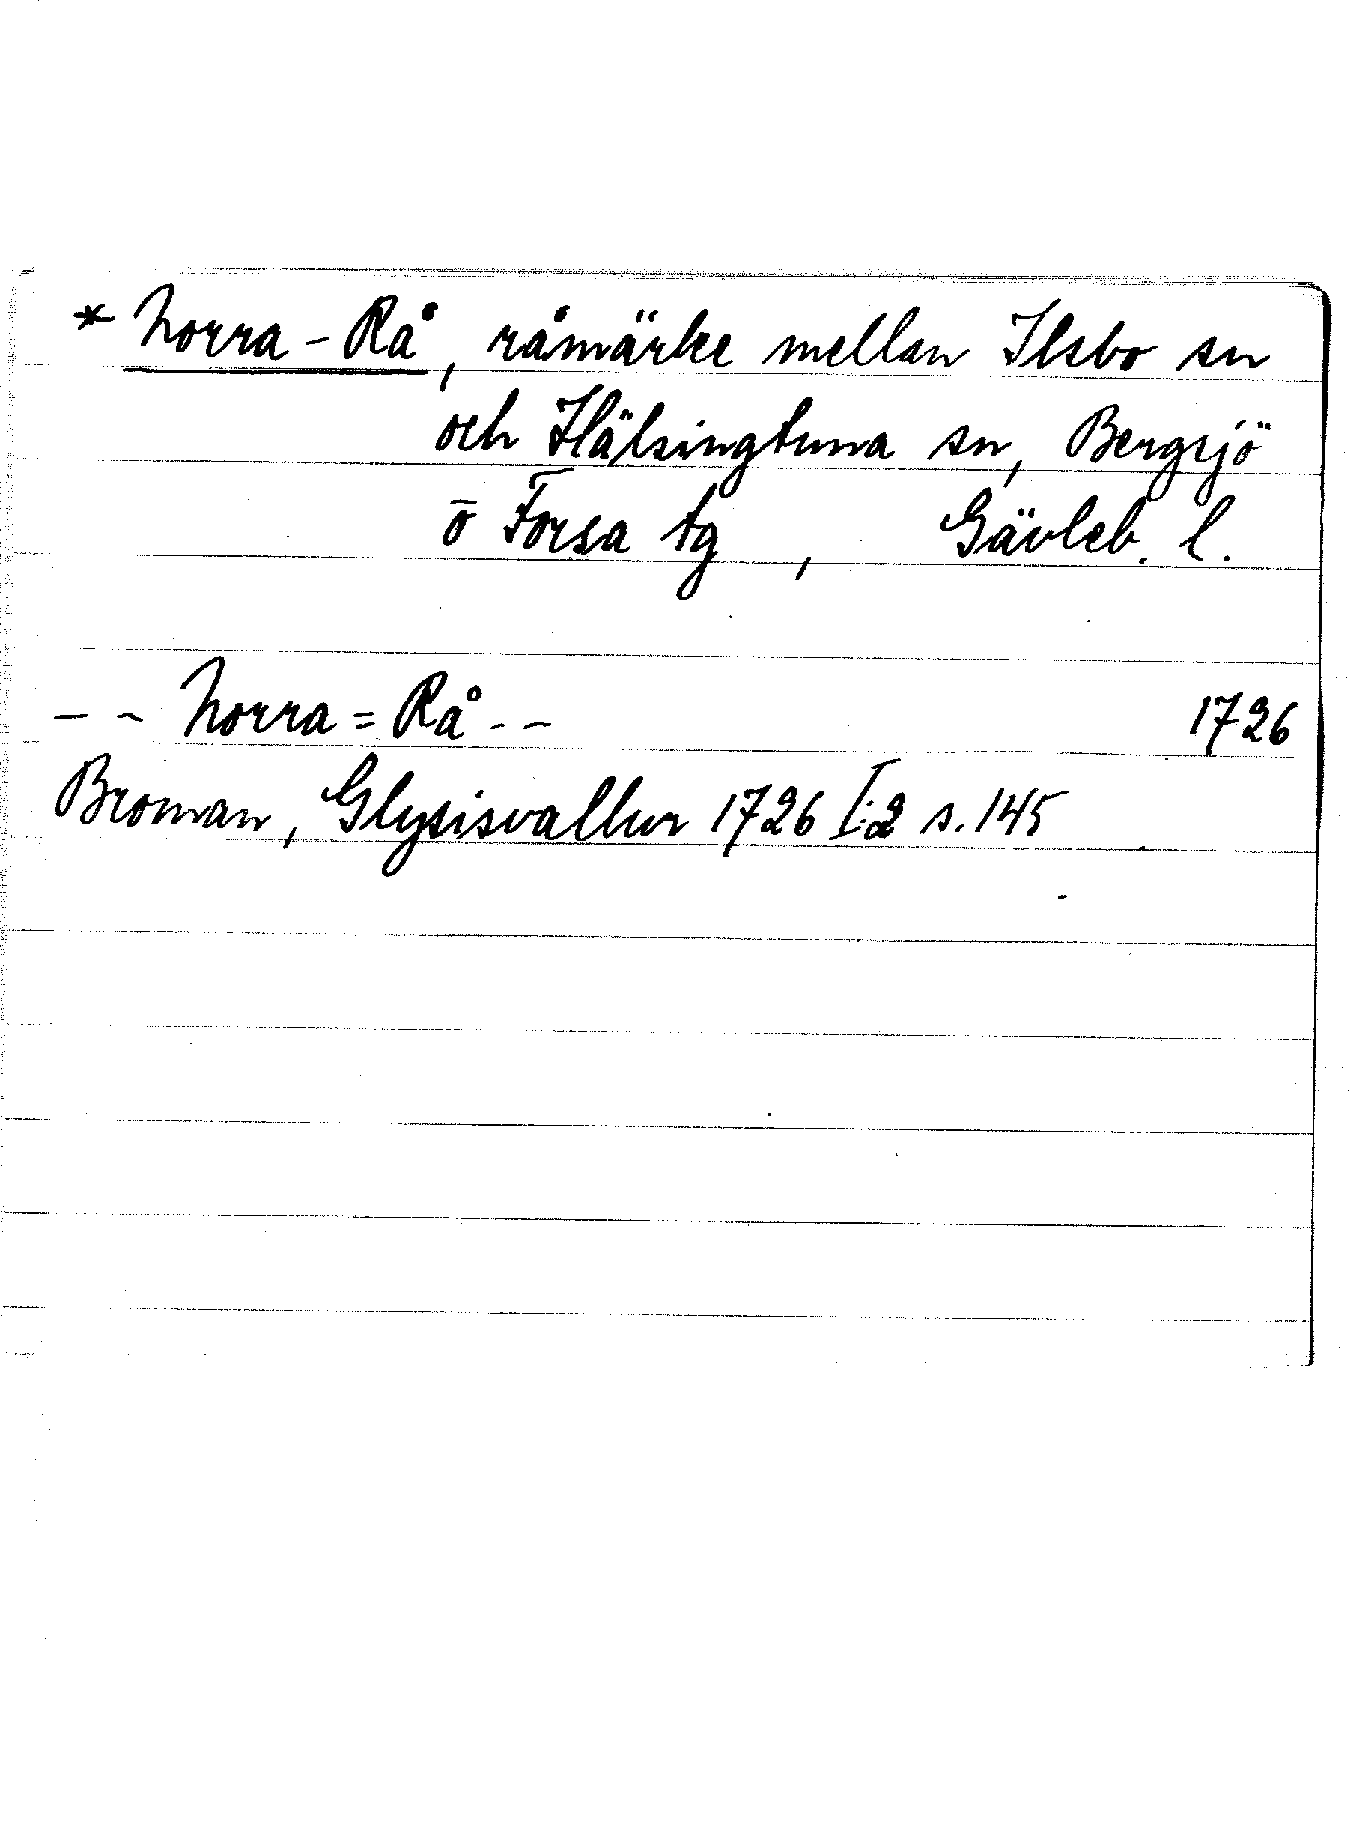 * Norra-Rå, råmärke mellan Ilsbo sn
och Hälsingtuna sn, Bergsjö
ō Forsa tg, Gävleb. l.
-- Norra=Rå -- 1726
Broman, Glysisvallur 1726 I:2 s. 145